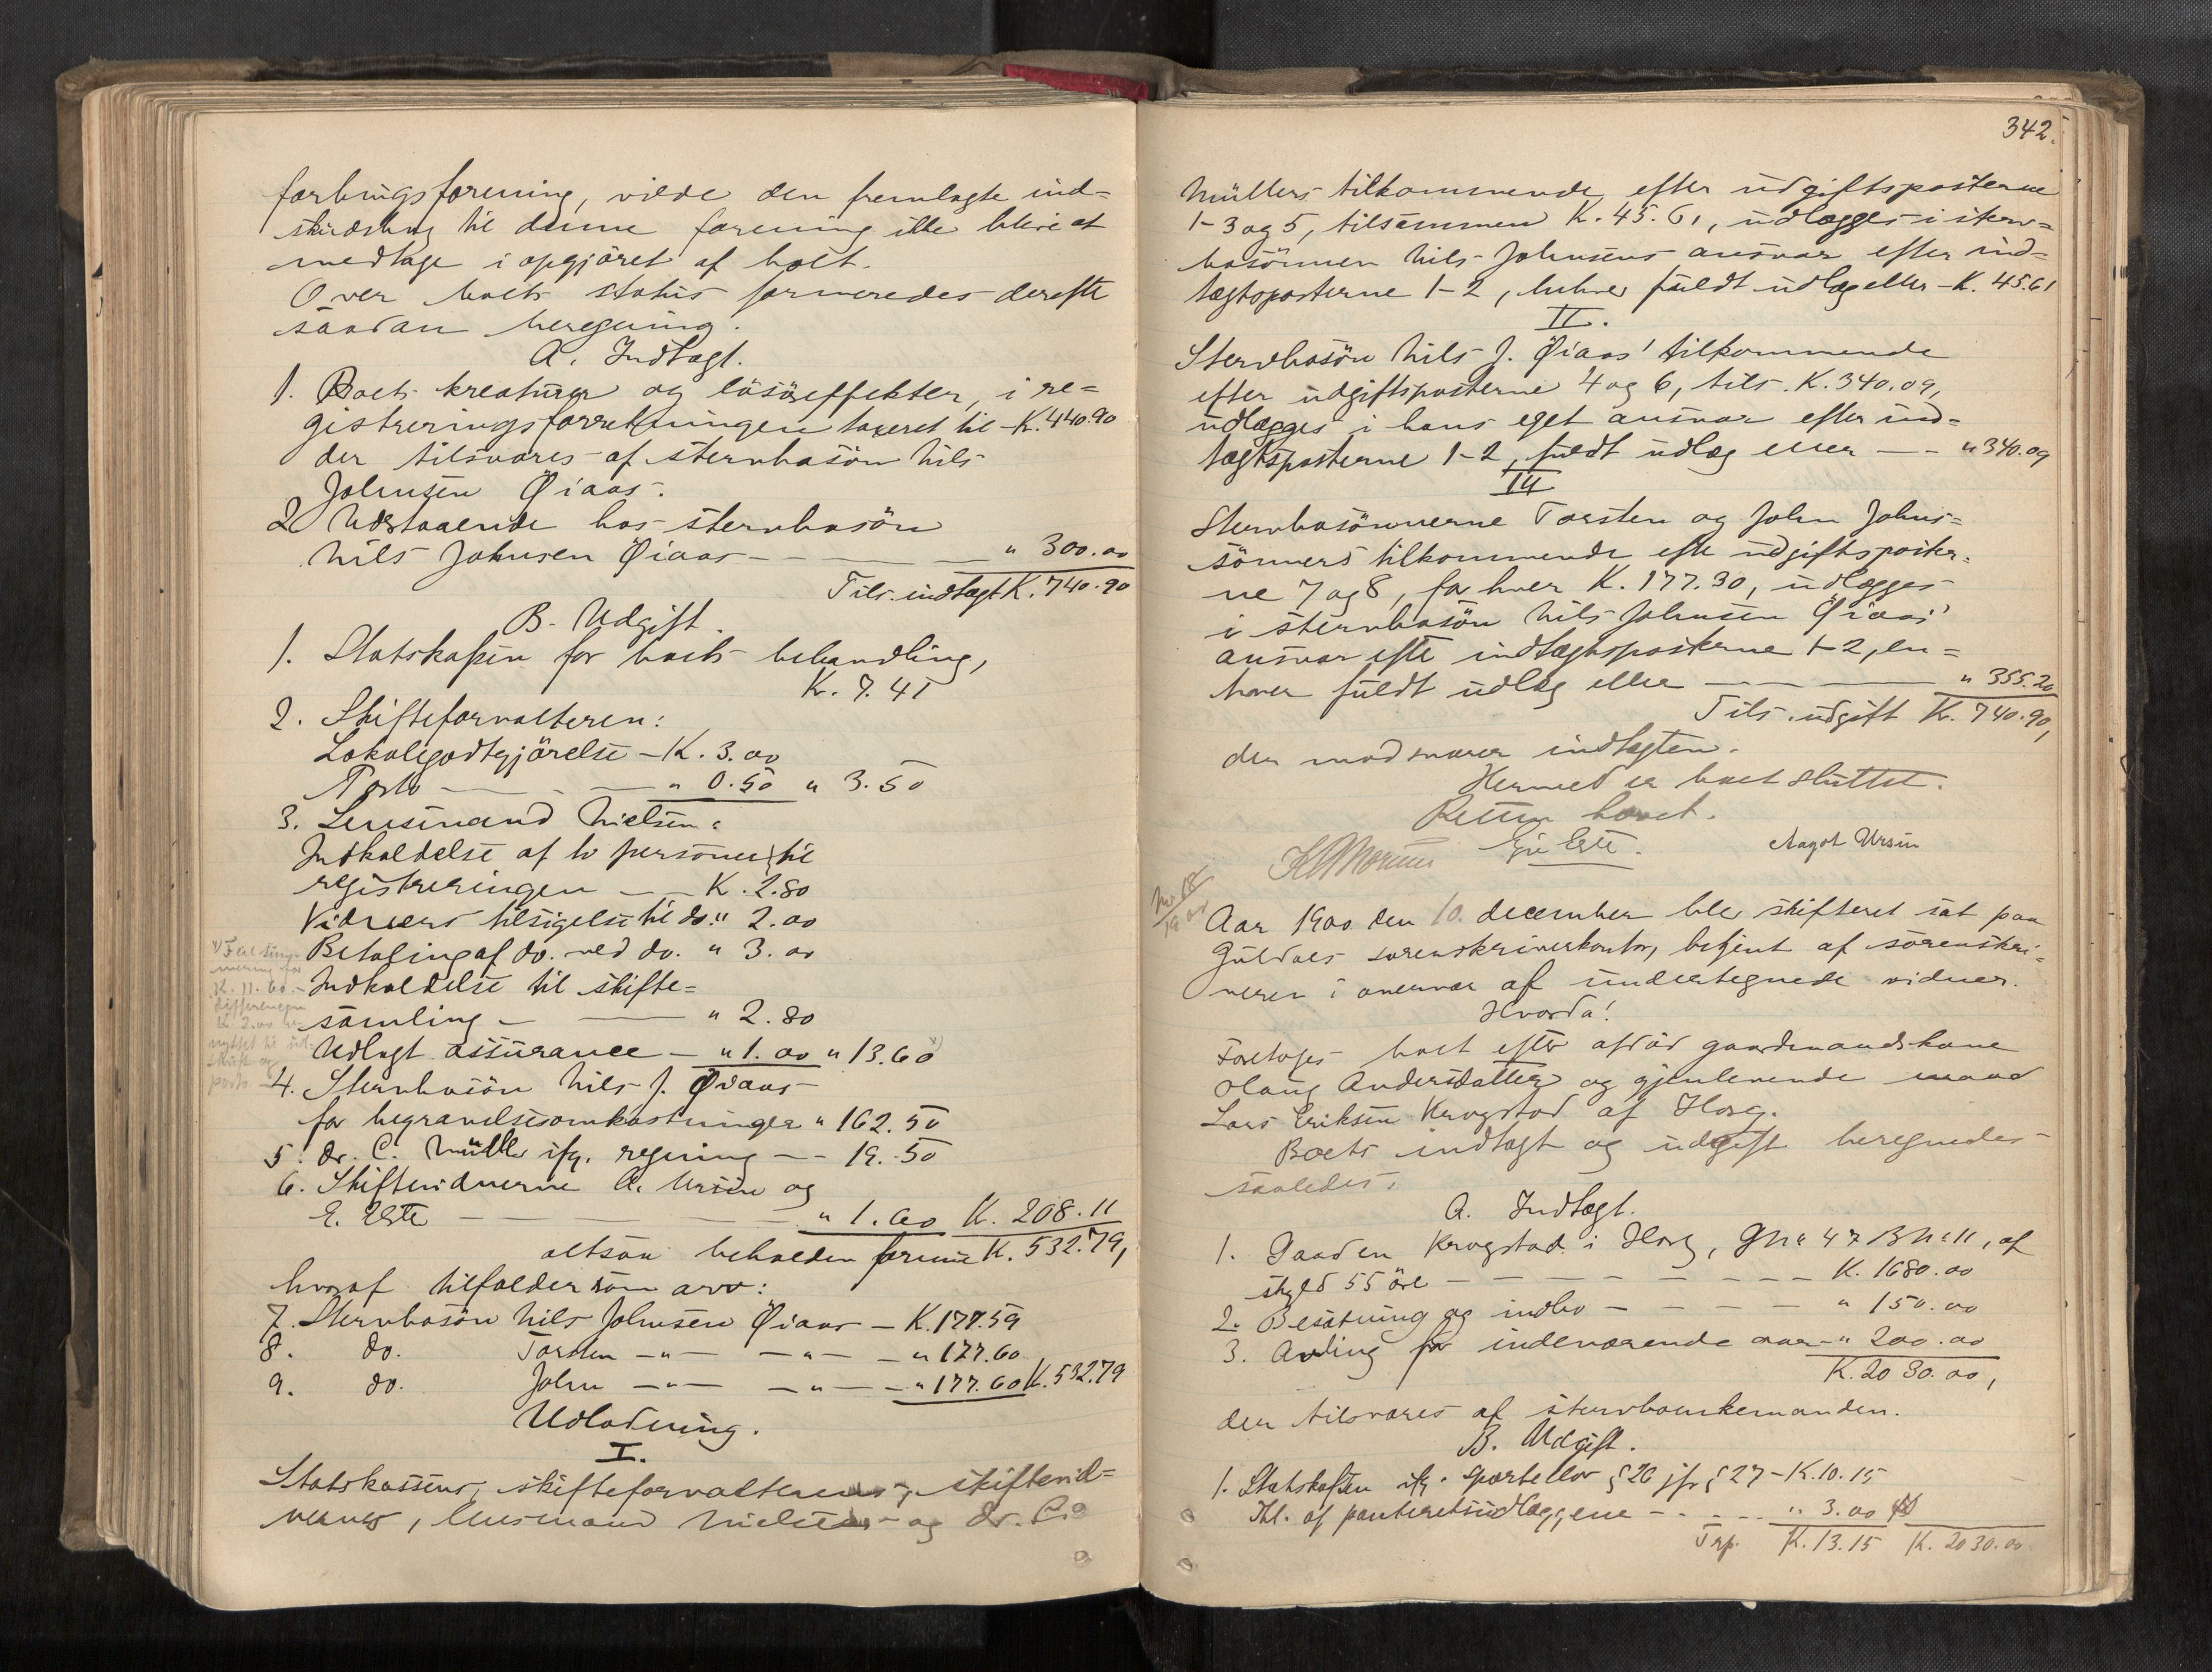 farlingsforening, vilde den fremlagte ind=
skudsbog til denne forening ikke blive at
medtage i opgjøret af boet.
Over boets status formeredes derefter
saadan beregning.
A. Indtægt.
1. Boets kreaturer og løsøreffekter, i re=
gistreringsforretningen taxeret til - K. 440.90
der tilsvares af stervbosøn Nils
Johnsen Øiaas.
2 Udestaaende hos stervbosøn
Nils Johnsen Øiaas — — — " 300.00
Tils. indtægt K. 740.90
B. Udgift.
1. Statskassen for boets behandling,
Kr. 7.41
2. Skifteforvalteren:
Lokalegodtgjørelse - K. 3.00
Porto — — — " 0.50 " 3.50
3. Lensmand Nielsen:
Indkaldelse af to personer til
registreringen — — K. 2.80
Vidners tilsigelse til do. " 2.00
Betaling af do. ved do. " 3.00
Indkaldelse til skifte=
samling — — " 2.80
Udlagt assurance — " 1.00 " 13.60 x)
x) Feilsum-
mering for
K. 11.60 -
differencen
K. 2.00 be-
nyttet til ud-
skrift og
porto
4. Stervbosøn Nils J. Øiaas
for begravelsesomkostninger " 162.50
5. dr. C. Müller ifg. regning — 19.50
6. Skiftevidnerne A. Ursin og
E. Este — — — " 1.60 K. 208.11
altsaa beholden formue K. 532.79,
hvoraf tilfalder som arv:
7. Stervbosøn Nils Johnsen Øiaas — K. 177.59
8. do. Torsten — " — — " — — " 177.60
9. do. John — " — — " — — " 177.60 K. 532.79
Udlodning.
I.
Statskassens, skifteforvalterens, skiftevid=
nernes, lensmand Nielsens og dr. C.
342.
Müllers tilkommende efter udgiftsposterne
1-3 og 5, tilsammen K. 45.61, udlægges i sterv=
bosønnen Nils Johnsens ansvar efter ind=
tægtsposterne 1-2, enhver fuldt udlæg eller - K. 45.61
II.
Stervbosøn Nils J. Øiaas' tilkommende
efter udgiftsposterne 4 og 6, tils. K. 340.09,
udlægges i hans eget ansvar efter ind=
tægtsposterne 1-2, fuldt udlæg eller — — " 340.09
III
Stervbosønnerne Torsten og John Johns=
sønners tilkommende efter udgiftsposter=
ne 7 og 8, for hver K. 177.30, udlægges
i stervbosøn Nils Johnsen Øiaas'
ansvar efter indtægtsposterne 1-2, en=
hver fuldt udlæg eller — — " 355.20
Tils. udgift K. 740.90,
der modsvarer indtægten.
Hermed er boet sluttet.
Retten hævet.
Ei Este. Aagot Ursin
Aar 1900 den 10. december blev skifteret sat paa
Guldals sorenskriverkontor, betjent af sorenskri=
veren i overvær af undertegnede vidner.
Hvorda!
Foretoges boet efter afdød gaardmandskone
Olaug Andersdatter og gjenlevende mand
Lars Eriksen Krogstad af Horg.
Boets indtægt og udgift beregnedes
saaledes:
A. Indtægt.
1. Gaarden Krogstad i Horg, GNr 47 BNr 11, af
skyld 55 øre — — — — — — — K. 1680.00
2. Besætning og indbo — — — — — " 150.00
3. Avling for indeværende aar — " 200.00
K. 2030.00,
der tilsvares af stervboenkemanden.
B. Udgift.
1. Statskassen ifg. sportellov § 26 jfr § 27 - K. 10.15
Thl. af panteretsudlæggene — — — " 3.00
Trp. K. 13.15 K. 2030.00